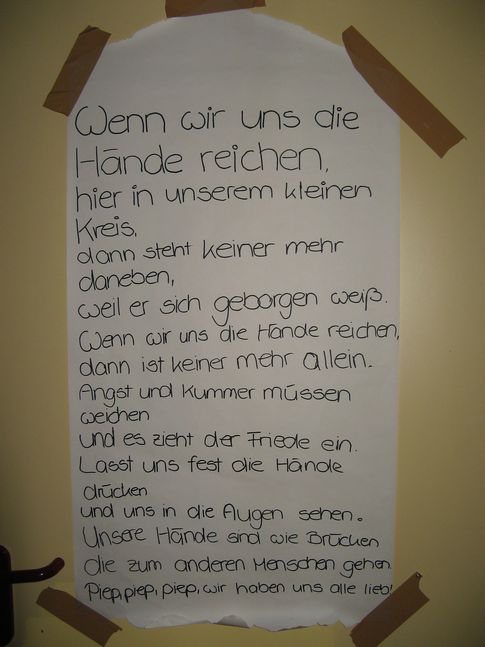 Wenn wir uns die
Hände reichen,
hier in unserem kleinen
Kreis,
dann steht keiner mehr
daneben,
weil er sich geborgen weiß.
Wenn wir uns die Hände reichen,
dann ist keiner mehr allein.
Angst und Kummer müssen
weichen
und es zieht der Friede ein.
Lasst uns fest die Hände
drücken
und uns in die Augen sehen.
Unsere Hände sind wie Brücken
die zum anderen Menschen gehen.
Piep, piep, piep, wir haben uns alle lieb!